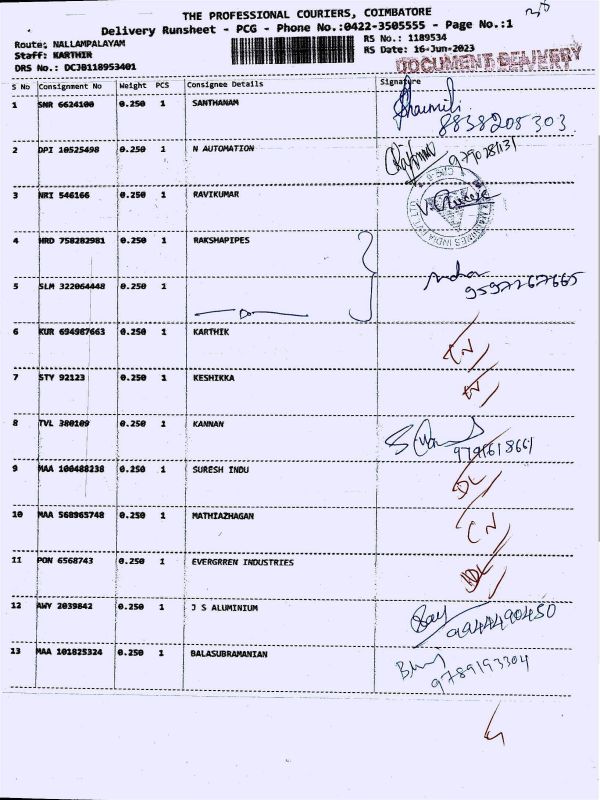 THE PROFESSIONAL COURIERS, COIMBATORE
Delivery Runsheet - PCG - Phone No.:0422-3505555 - Page No.:1
Route: NALLAMPALAYAM
RS No.: 1189534
Staff: KARTHIK
RS Date: 16-Jun-2023
DRS No.: DCJ0118953401
DOCUMENT DELIVERY
S No Consignment No Weight PCS Consignee Details Signature
1 SNR 6624100 0.250 1 SANTHANAM
8838208303
2 DPI 10525498 0.250 1 N AUTOMATION
3 NRI 546166 0.250 1 RAVIKUMAR
4 HRD 758282981 0.250 1 RAKSHAPIPES
5 SLM 322064448 0.250 1 Do
9597267665
6 KUR 694987663 0.250 1 KARTHIK CN
7 STY 92123 0.250 1 KESHIKKA
8 TVL 380109 0.250 1 KANNAN
9791618661
9 MAA 100488238 0.250 1 SURESH INDU DL
10 MAA 568965748 0.250 1 MATHIAZHAGAN CN
11 PON 6568743 0.250 1 EVERGRREN INDUSTRIES DL
12 AWY 2039842 0.250 1 J S ALUMINIUM
9944490450
13 MAA 101825324 0.250 1 BALASUBRAMANIAN
9789193304